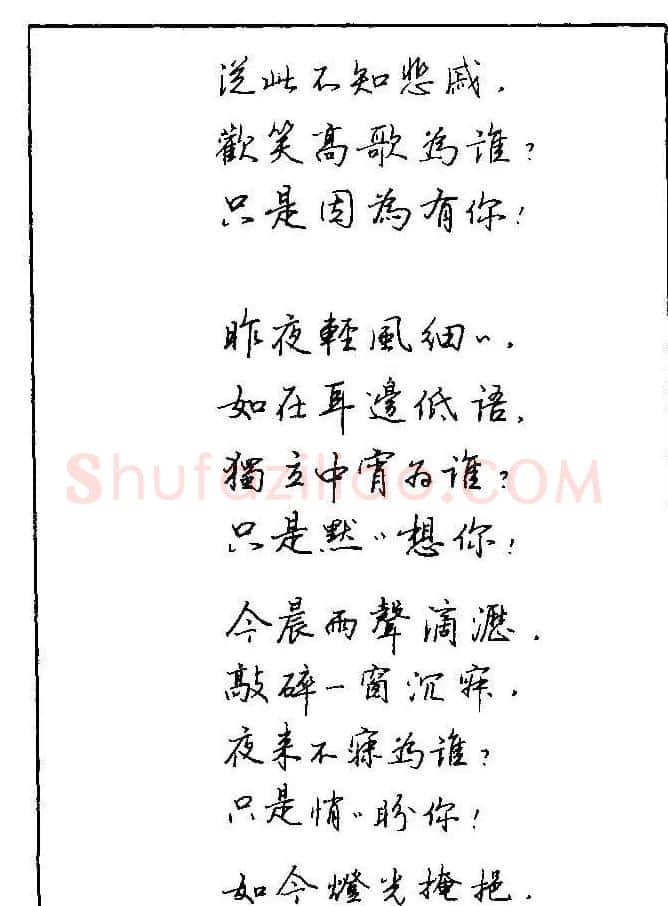 従此不知悲戚，
歡笑高歌為誰？
只是因為有你！
昨夜輕風細〻，
如在耳邊低语，
獨立中宵为誰？
只是默〻想你！
今晨雨聲滴瀝，
敲碎一窗沉寐，
夜来不寐為誰？
只是悄〻盼你！
如今燈光掩挹，
Shufaziliao.COM